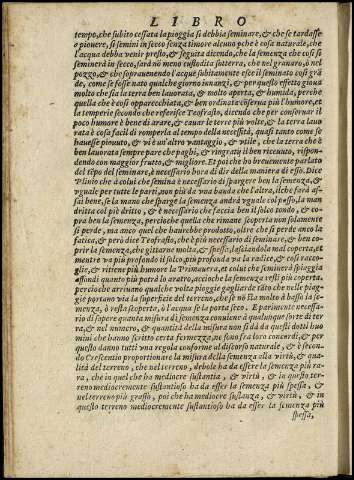 LIBRO
tempo, che subito cessata la pioggia si debbia seminare, & che se tardasse
a piovere, si semini in secco senza timore alcuno pche è cosa naturale, che
l'acqua debba venir presto, & seguita dicendo, che la semenza che così si
seminerà in secco, sarà nō meno custodita sotterra, che nel granaro, o nel
pozzo, & che sopravenendo l'acque subitamente esce il seminato così grā
de, come se fosse nato qualche giorno innanzi, & per questo effetto giova
molto che sia la terra ben lavorata, & molto aperta, & humida, perche
quella che è così apparecchiata, & ben ordinata cōserva più l'humore, et
la temperie secondo che riferisce Teofrasto, dicendo che per conservar il
poco humore è bene di arare, & cavar le terre più volte, & la terra lavo
rata è cosa facil di romperla al tempo della necessità, quasi tanto come se
havesse piovuto, & vi è un'altro vantaggio, & utile, che la terra che è
ben lavorata sempre pare che paghi, & ringratij il ben ricevuto, rispon-
dendo con maggior frutto, & migliore. Et poi che ho brevemente parlato
del tēpo del seminare, è necessario hora di dir della maniera di esso. Dice
Plinio che à colui che semina è necessario di spargere ben la semenza, &
vgvale per tutte le parti, non più da vna banda che l'altra, ilche farà as-
sai bene, se la mano che sparge la semenza andrà vguale col passo, la man
dritta col piè dritto, & è necessario che faccia ben il solco tondo, & co
pra ben la semenza, percioche quella che rimane scoperta non solamente
si perde, ma anco quel che haurebbe prodotto, oltre che si perde anco la
fatica, & però dice Teofrasto, che è più necessario di seminare, & ben co-
prir la semenza, che gittarne molta, & spessa, lasciandola mal coperta, et
mentre va più profondo il solco, più profonda va la radice, & così racco-
glie, & ritiene più humore la Primavera, et colui che seminerà spiaggia
affondi quanto più potrà lo aratro, acciochè la semenza resti più coperta,
percioche arrivano qualche volta pioggie gagliarde tāto che nelle piag-
gie portano via la superficie del terreno, che se nō sta molto à basso la se-
menza, ò resta scoperta, ò l'acqua se la porta seco. E parimente necessa-
rio di sapere quanta misura di semenza conviene à qualunque sorte di ter
ra, & nel numero, & quantità della misura non si dà da questi dotti huo
mini che hanno scritto certa fermezza, ne sono fra loro concordi, & per
questo danno tutti vna regola conforme al discorso naturale, & è secon-
do Crescentio proportionare la misura della semenza alla virtù, & qua
lità del terreno, che nel terreno, debole ha da essere la semenza più ra-
ra, che in quel che ha mediocre sustantia, & virtù, & in questo ter-
reno mediocremente sustantioso ha da esser la semenza più spessa, &
nel terreno più grasso, poi che ha mediocre sustanza, & virtù, & in
questo terreno mediocremente sustantioso ha da esser la semenza più
spessa,